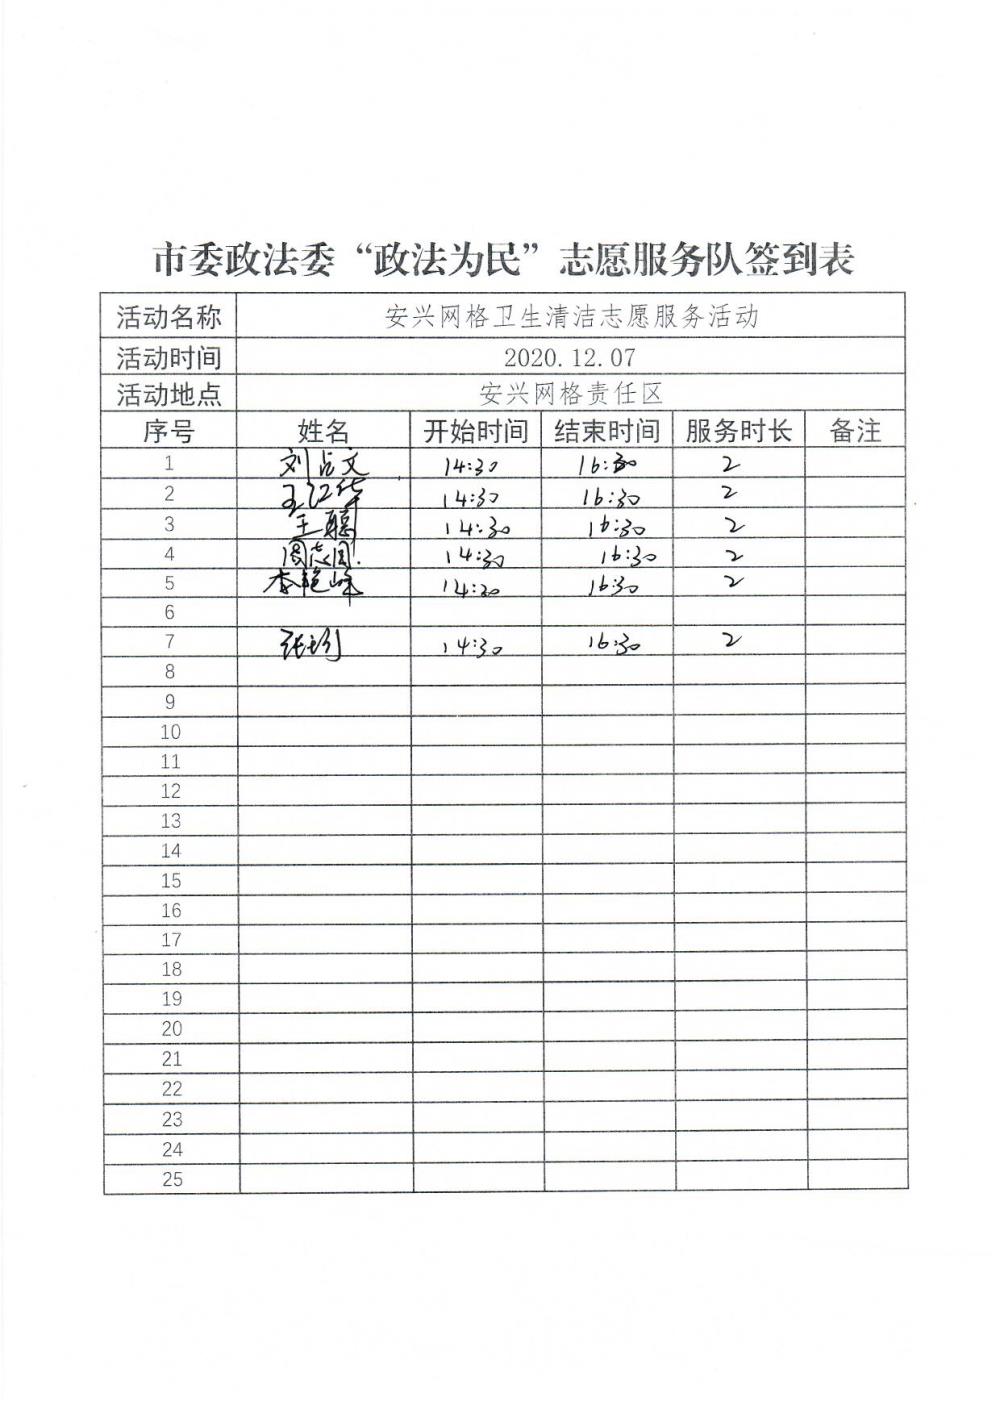 市委政法委“政法为民”志愿服务队签到表
活动名称 安兴网格卫生清洁志愿服务活动
活动时间 2020.12.07
活动地点 安兴网格责任区
序号 姓名 开始时间 结束时间 服务时长 备注
1 刘占文 14:30 16:30 2
2 王江华 14:30 16:30 2
3 王聪 14:30 16:30 2
4 周志国 14:30 16:30 2
5 李艳峰 14:30 16:30 2
6
7 张 14:30 16:30 2
8
9
10
11
12
13
14
15
16
17
18
19
20
21
22
23
24
25